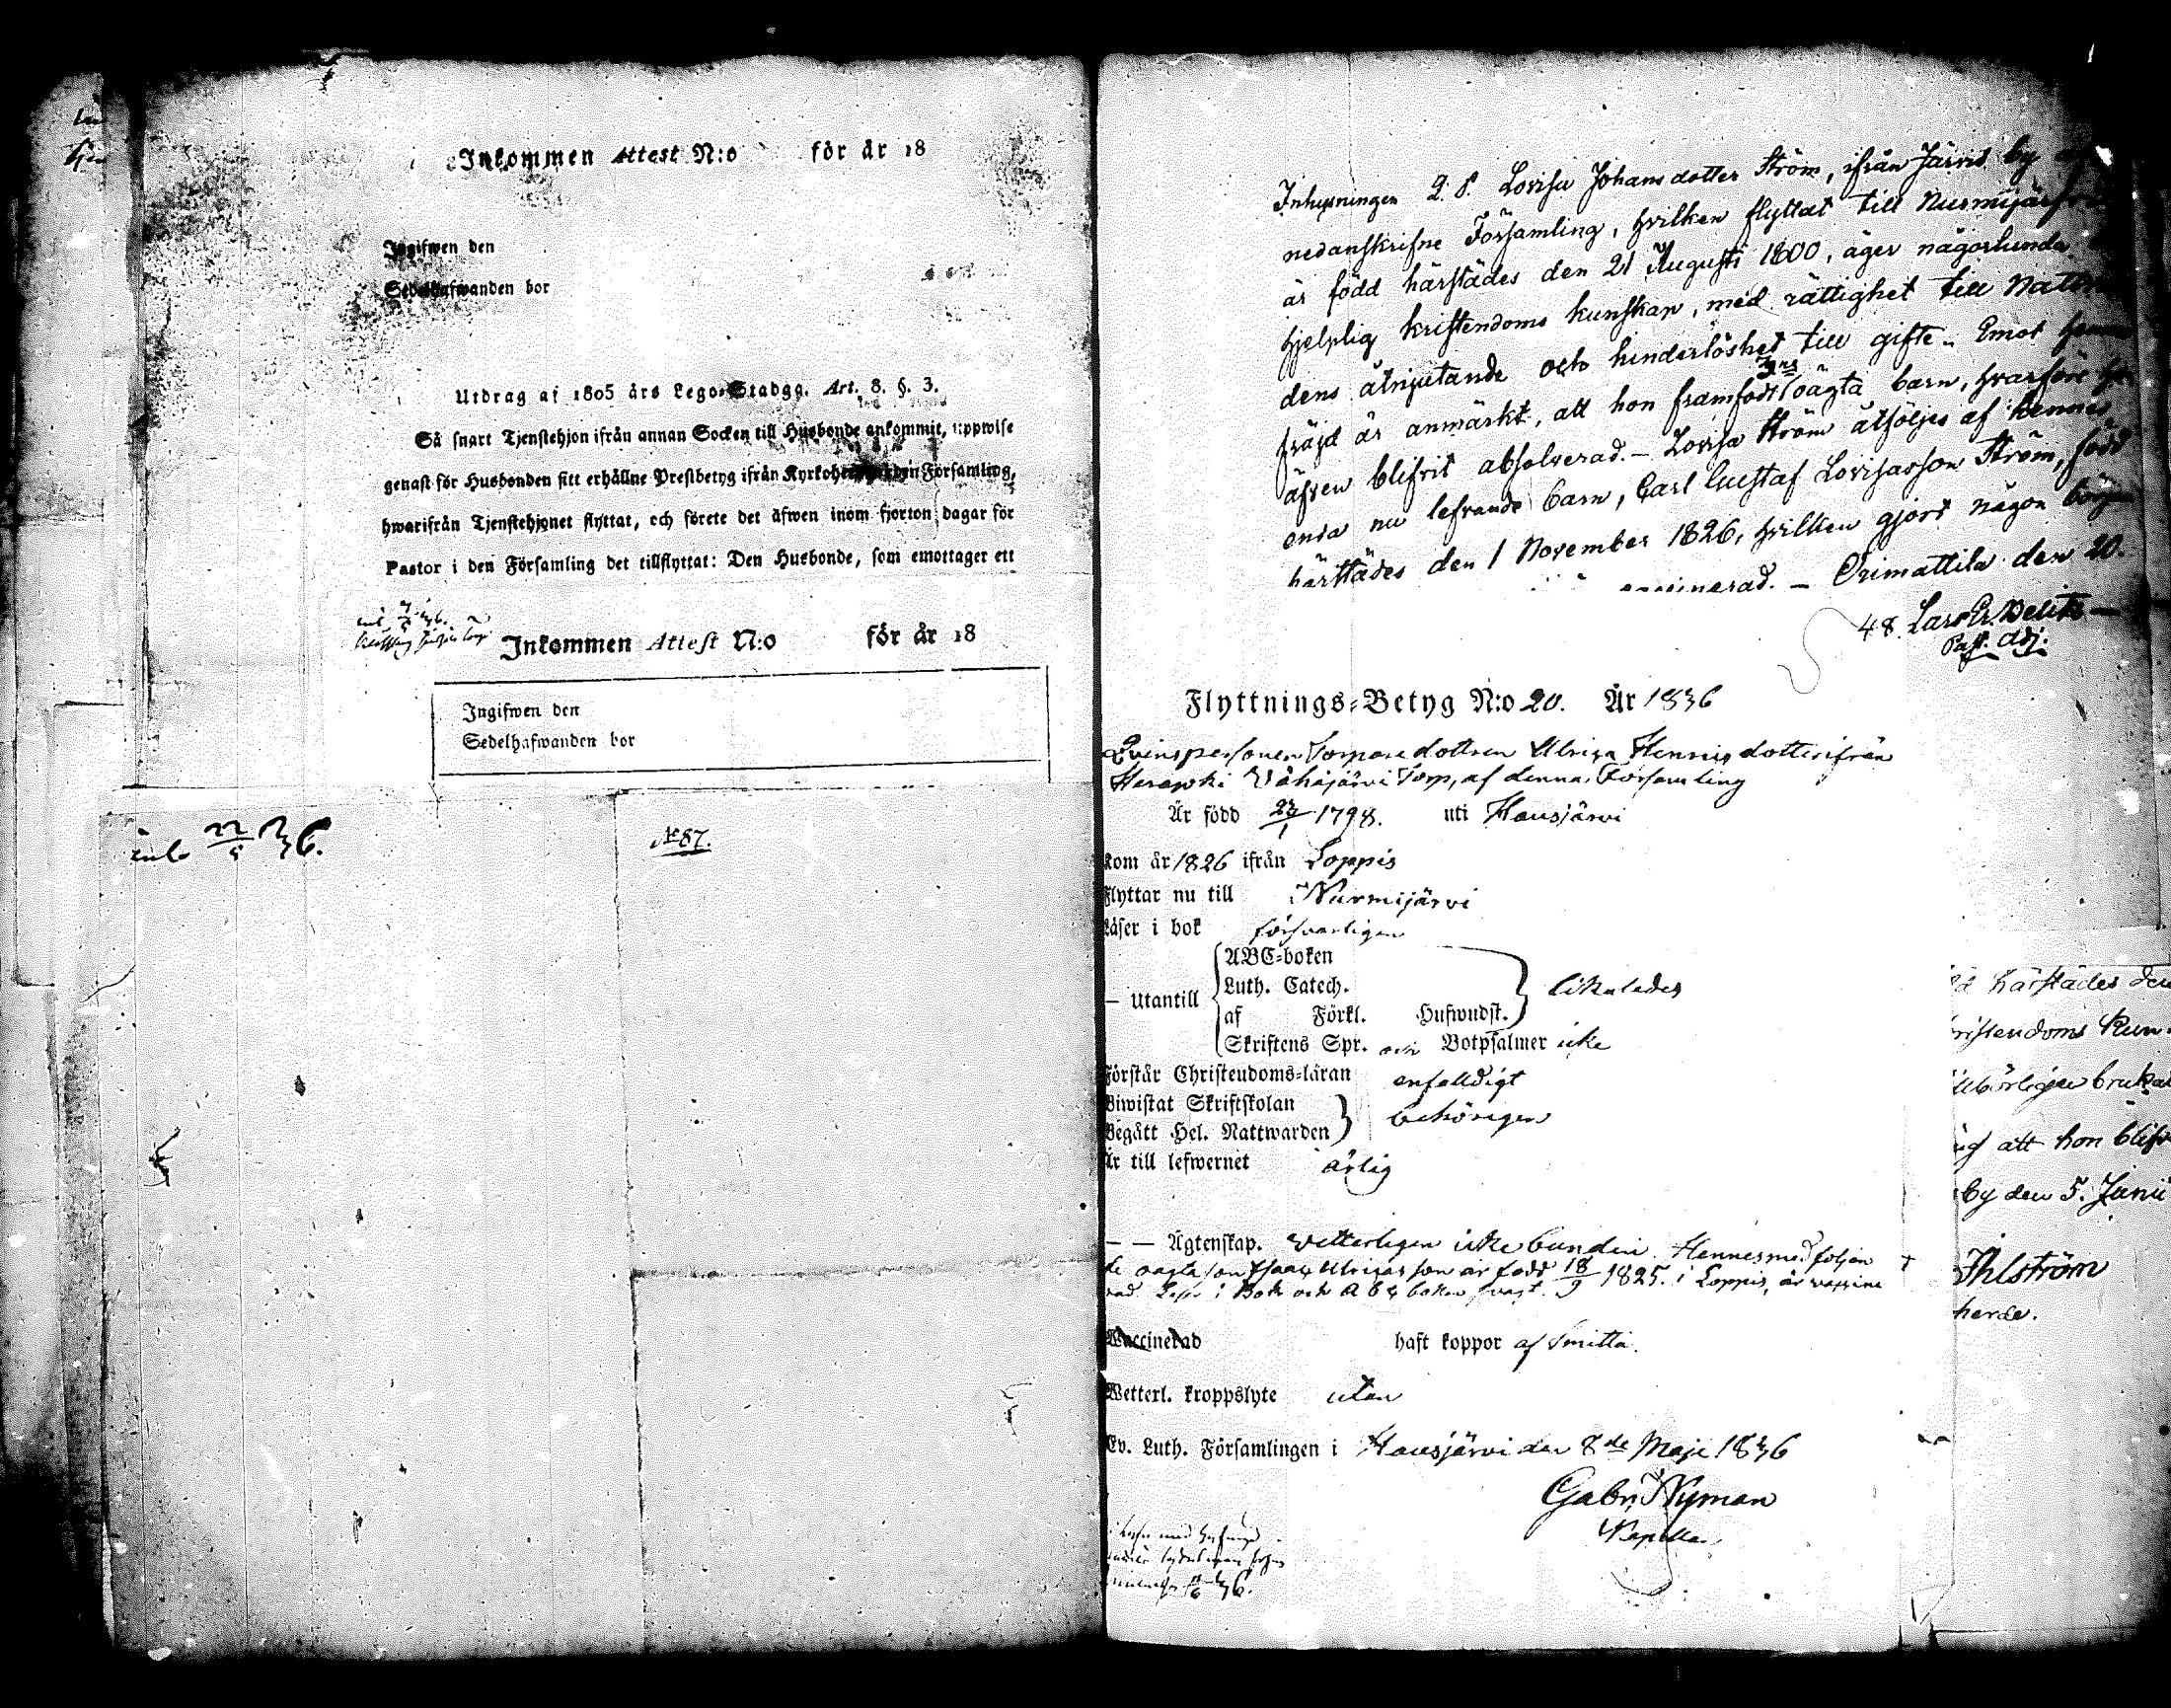 Inkommen Attest N:o för år 18
Ingifwen den
Sedelhafwanden bor
Utdrag af 1805 års Lego-Stadga. Art. 8. §. 3.
Så snart Tjenstehjon ifrån annan Socken till Husbonde ankommit, uppwise
genast för Husbonden sitt erhållne Prestbetyg ifrån Församling,
hwarifrån Tjenstehjonet flyttat, och förete det äfwen inom fjorton dagar för
Pastor i den Församling det tillflyttat: Den Husbonde, som emottager ett
Inkommen Attest N:o för år 18
Ingifwen den
Sedelhafwanden bor
inl. 22/5 36.
N:87.
Inhysningen Q. P. Lovisa Johansdotter Ström, ifrån Järvis by
nedanskrifne Församling, hvilken flyttat till
är född härstädes den 21 Augusti 1800, äger någorlunda
hjelplig kristendoms kunskap, med rättighet till
dens åtnjutande och hinderlöshet till gifte. Emot
3ne
fräjd är anmärkt, att hon framfödt oägta barn, hvarföre
äfven blifvit absolverad. – Lovisa Ström åtföljes af hennes
enda nu lefvande barn, Carl Gustaf Lovisasson Ström, född
härstädes den 1 November 1826, hvilken gjort någon början
Orimattila den 20.
48. Lars
Past. Adj.
Flyttnings-Betyg N:o 20. År 1836
Qvinspersonen Torparedottren Ulrica Henricsdotter ifrån
Vähäjärvi Torp, af denna Församling
Är född 23/1 1798. uti Hausjärvi
kom år 1826 ifrån Loppis
Flyttar nu till Nurmijärvi
Läser i bok försvarligen
ABC-boken
Luth. Catech.
— Utantill likaledes
af Förkl. Hufwudst.
Skriftens Spr. och Botpsalmer icke
Förstår Christendoms-läran enfalldigt
Biwistat Skriftskolan
behörigen
Begått Hel. Nattwarden
Är till lefwernet ärlig
— — Ägtenskap. vetterligen icke bunden. Hennes medföljan
de oägta son Isaac Ulricasson är född 18/9 1825. i Loppis, är vaccine
rad. Läser i Bok och ABC boken svagt.
Waccinerad haft koppor af Smitta.
Wetterl. kroppslyte utan
Ev. Luth. Församlingen i Hausjärvi den 8de Maji 1836
Gabr. Nyman
Kapellan
36.
härstädes den
ristendoms Kun-
brukat
att hon blifv
by den 5. Junii
Ihlström
herde.